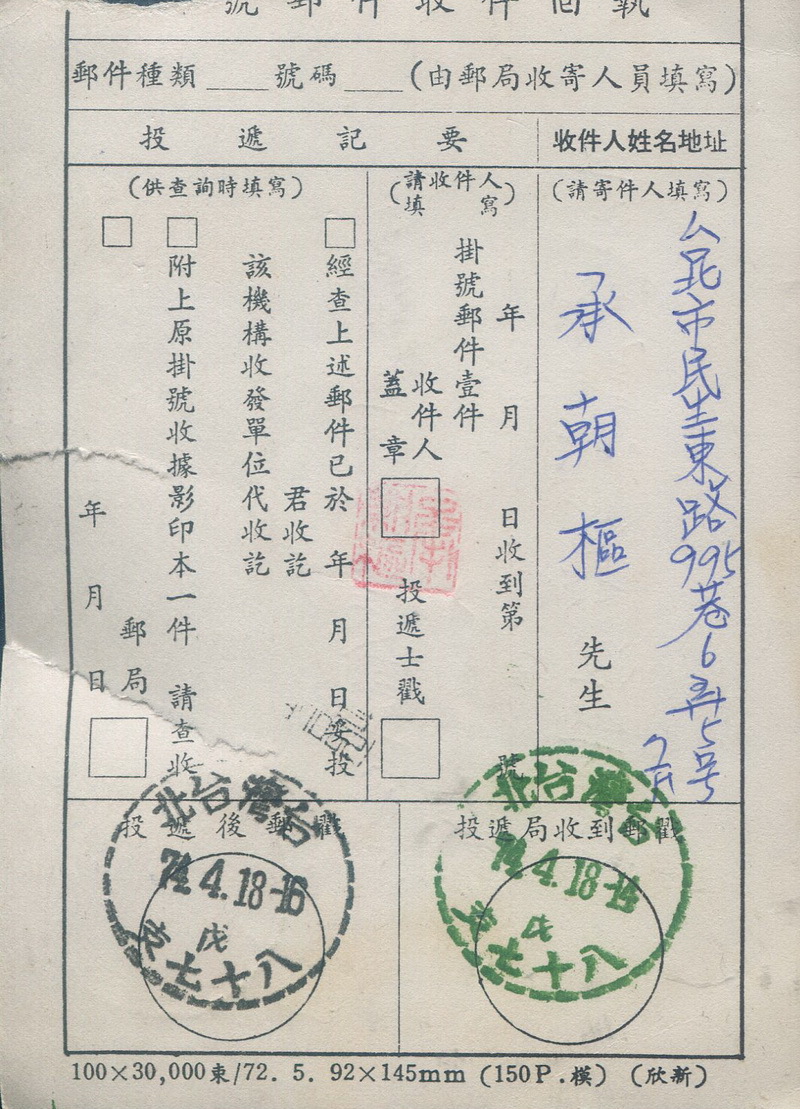 號郵件收件回執
郵件種類____號碼____(由郵局收寄人員填寫)
投遞記要
收件人姓名地址
(請寄件人填寫)
民生東路995巷6弄5号
承朝樞先生
(請收件人填寫)
年月日收到第號
掛號郵件壹件
收件人
蓋章
投遞士戳
(供查詢時填寫)
經查上述郵件已於年月日妥投
君收訖
該機構收發單位代收訖
附上原掛號收據影印本一件請查收
郵局
年月日
投遞後郵戳
投遞局收到郵戳
台灣台北
74.4.18-16
戊
支七十八
台灣台北
74.4.18
戊
支七十八
100×30,000束/72. 5. 92×145mm (150P.模) (欣新)